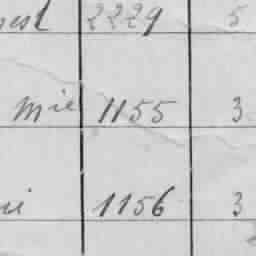 2229 5
Mie 1155 3
1156 3